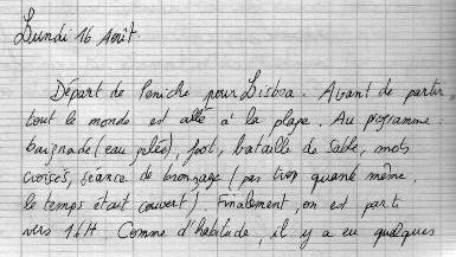 Lundi 16 Août.
Départ de Peniche pour Lisboa. Avant de partir,
tout le monde est allé à la plage. Au programme :
baignade (eau gelée), foot, bataille de sable, mots
croisés, séance de bronzage (pas trop quand même,
le temps était couvert). Finalement, on est parti
vers 16H. Comme d'habitude, il y a eu quelques